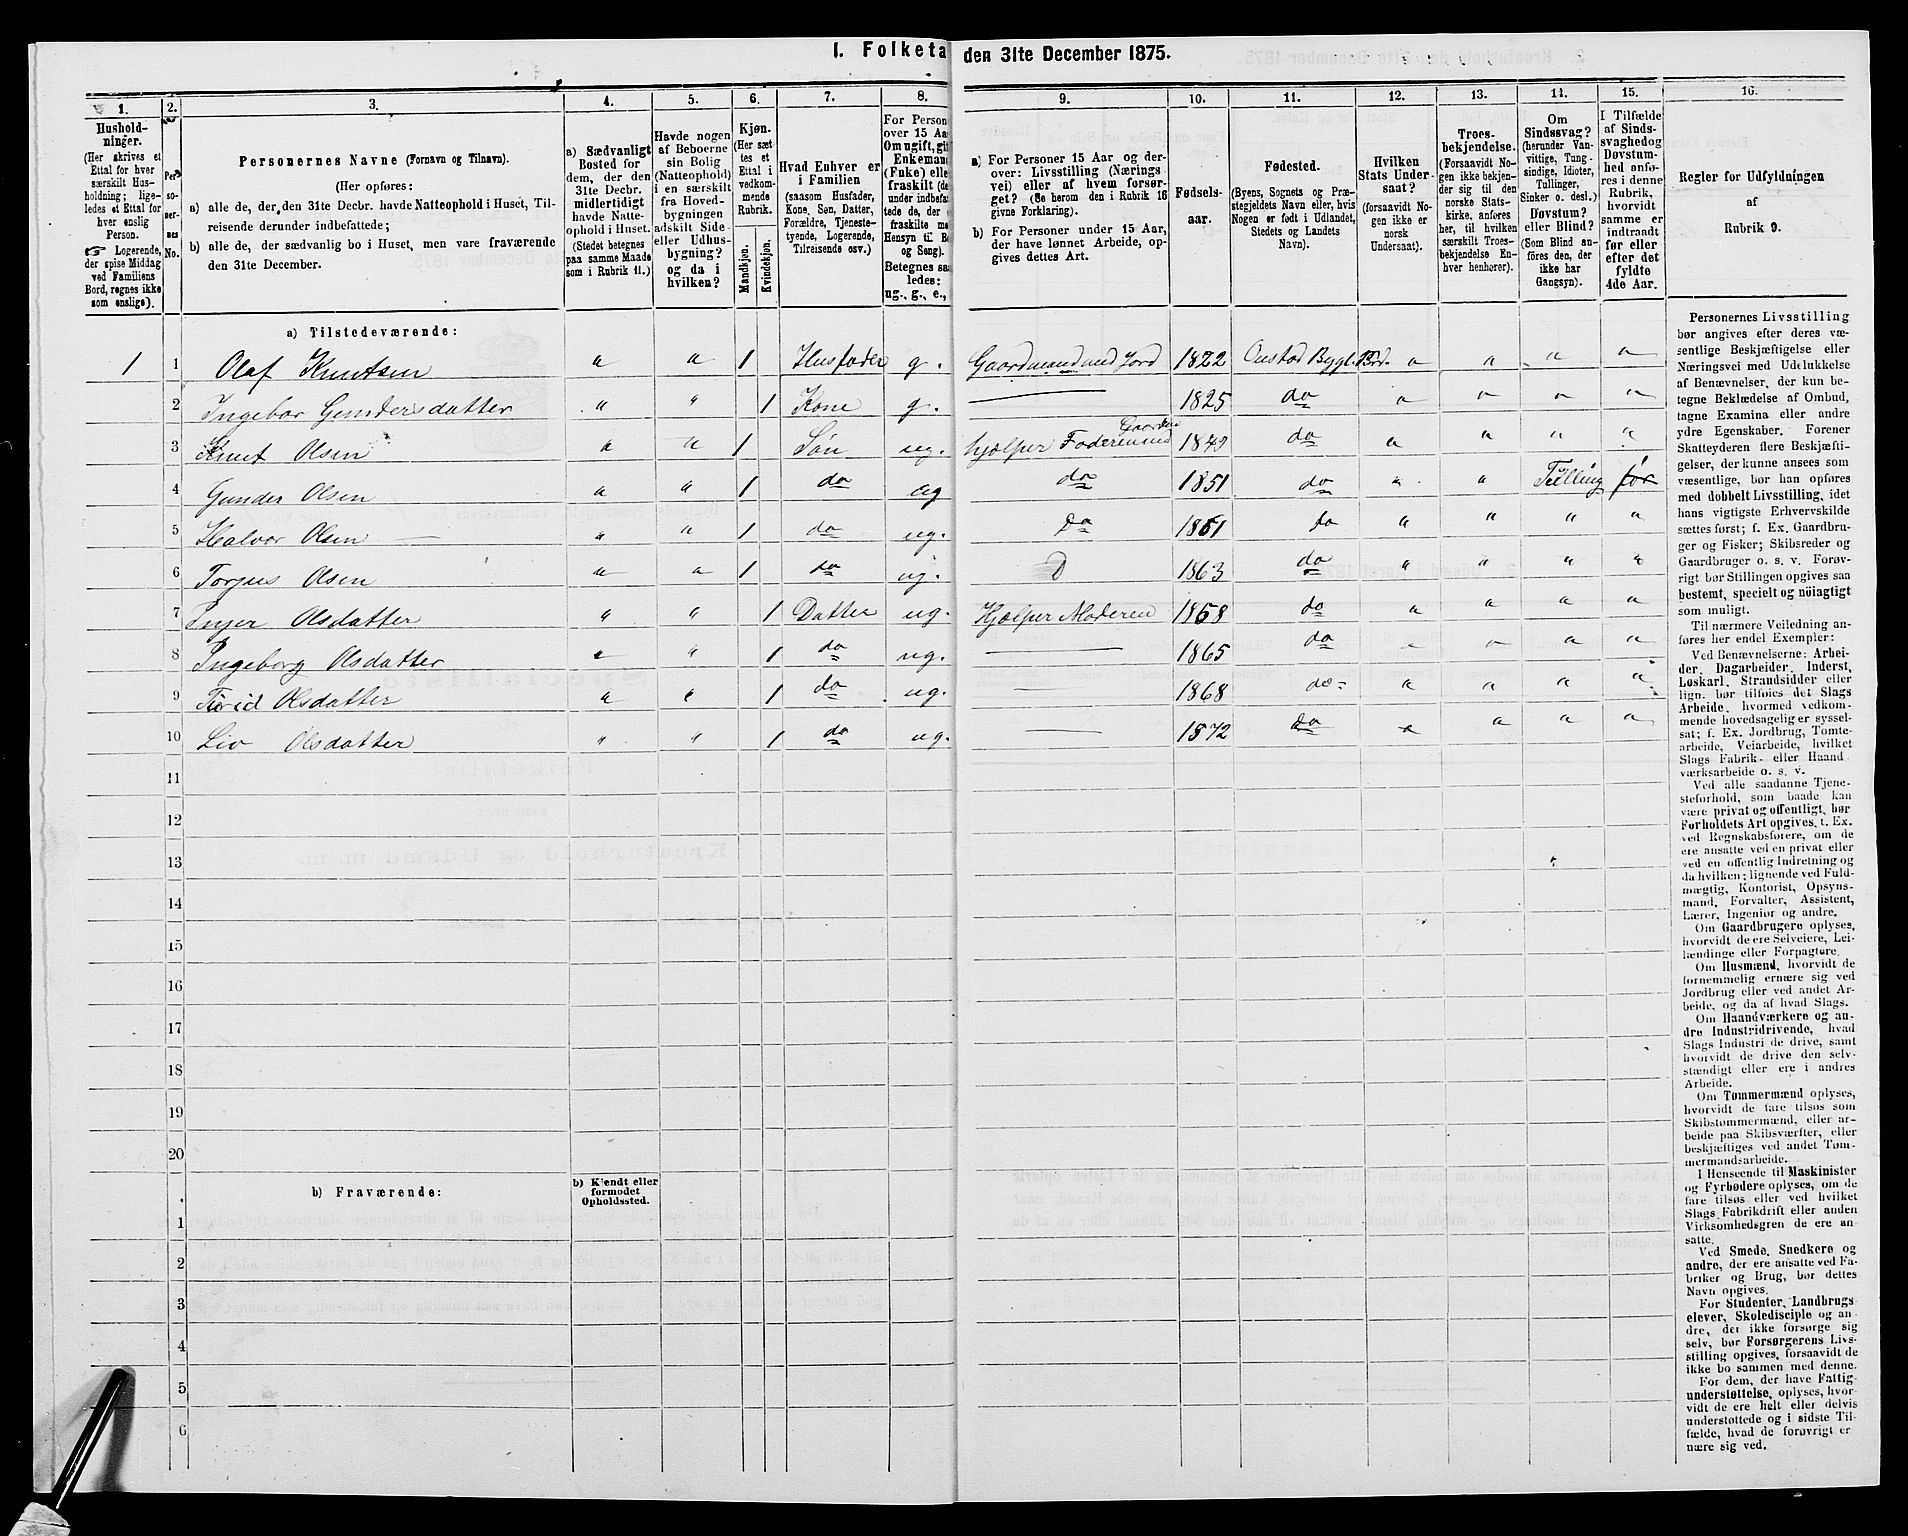 I. Folketa den 31te December 1875.
1. 2. 3. 4. 5. 6. 7. 8. 9. 10. 11. 12. 13. 14. 15. 16.
Hushold-
ninger.
(Her skrives et
Ettal for hver
særskilt Hus-
holdning; lige-
ledes et Ettal for
hver enslig
Person.
☞ Logerende,
der spise Middag
ved Familiens
Bord, regnes ikke
som enslige).
Per-
so-
ner-
nes
No.
Personernes Navne (Fornavn og Tilnavn).
(Her opføres:
a) alle de, der den 31te Decbr. havde Natteophold i Huset, Til-
reisende derunder indbefattede;
b) alle de, der sædvanlig bo i Huset, men vare fraværende
den 31te December.
a) Sædvanligt
Bosted for
dem, der den
31te Decbr.
midlertidigt
havde Natte-
ophold i Huset.
(Stedet betegnes
paa samme Maade
som i Rubrik 11.)
Havde nogen
af Beboerne
sin Bolig
(Natteophold)
i en særskilt
fra Hoved-
bygningen
adskilt Side-
eller Udhus-
bygning?
og da i
hvilken?
Kjøn.
(Her sæt-
tes et
Ettal i
vedkom-
mende
Rubrik.
Mandkjøn.
Kvindekjøn.
Hvad Enhver er
i Familien
(saasom Husfader,
Kone, Søn, Datter,
Forældre, Tjeneste-
tyende, Logerende,
Tilreisende osv.)
For Person
over 15 Aa
Om ugift, gif
Enkemand
(Enke) elle
fraskilt (de
under indbefat
tede de, der e
fraskilte me
Hensyn til Bo
og Seng).
Betegnes saa
ledes:
ug., g., e.,
a) For Personer 15 Aar og der-
over: Livsstilling (Nærings
vei) eller af hvem forsør-
get? (Se herom den i Rubrik 16
givne Forklaring).
b) For Personer under 15 Aar,
der have lønnet Arbeide, op-
gives dettes Art.
Fødsels-
aar.
Fødested.
(Byens, Sognets og Præ-
stegjeldets Navn eller, hvis
Nogen er født i Udlandet,
Stedets og Landets
Navn).
Hvilken
Stats Under-
saat?
(forsaavidt No-
gen ikke er
norsk
Undersaat).
Troes-
bekjendelse.
(Forsaavidt No-
gen ikke bekjen-
der sig til den
norske Stats-
kirke, anføres
her, til hvilken
særskilt Troes-
bekjendelse En-
hver henhører).
Om
Sindssvag?
(herunder Van-
vittige, Tung-
sindige, Idioter,
Tullinger,
Sinker o. desl.)
Døvstum?
eller Blind?
(Som Blind an-
føres den, der
ikke har
Gangsyn).
I Tilfælde
af Sinds-
svaghed og
Døvstum-
hed anfø-
res i denne
Rubrik,
hvorvidt
samme er
indtraadt
før eller
efter det
fyldte
4de Aar.
Regler for Udfyldningen
af
Rubrik 9.
a) Tilstedeværende:
1 1 Olaf Knutsen " " 1 Husfader g. Gaardmand med Jord 1822 Bygl. " " " "
2 Ingebor Gundersdatter " " 1 Kone g. — 1825 do " " " "
3 Knut Olsen " " 1 Søn ug. hjælper Faderen med Gaarden 1849 do " " " "
4 Gunder Olsen " " 1 do ug do 1851 do " " Tulling før
5 Halvor Olsen — " " 1 do ug. do 1861 do " " " "
6 Torjus Olsen " " 1 do ug. D 1863 do " " " "
7 Inger Olsdatter " " 1 Datter ug. Hjælper Moderen 1858 do " " " "
8 Ingeborg Olsdatter " " 1 do ug. — 1865 do " " " "
9 Turid Olsdatter " " 1 do ug. — 1868 do " " " "
10 Liv Olsdatter " " 1 do ug. — 1872 do " " " "
11
12
13
14
15
16
17
18
19
20
b) Fraværende:
b) Kjendt eller
formodet
Opholdssted.
1
2
3
4
5
6
Personernes Livsstilling
bør angives efter deres væ-
sentlige Beskjæftigelse eller
Næringsvei med Udelukkelse
af Benævnelser, der kun be-
tegne Beklædelse af Ombud,
tagne Examina eller andre
ydre Egenskaber. Forener
Skatteyderen flere Beskjæfti-
gelser, der kunne ansees som
væsentlige, bør han opføres
med dobbelt Livsstilling, idet
hans vigtigste Erhvervskilde
sættes først; f. Ex. Gaardbru-
ger og Fisker; Skibsreder og
Gaardbruger o. s. v. Forøv-
rigt bør Stillingen opgives saa
bestemt, specielt og nøiagtigt
som muligt.
Til nærmere Veiledning an-
føres her endel Exempler:
Ved Benævnelserne: Arbei-
der, Dagarbeider, Inderst,
Løskarl, Strandsidder eller
lign. bør tilføies det Slags
Arbeide, hvormed vedkom-
mende hovedsagelig er syssel-
sat; f. Ex. Jordbrug, Tomte-
arbeide, Veiarbeide, hvilket
Slags Fabrik- eller Haand
værksarbeide o. s. v.
Ved alle saadanne Tjene-
steforhold, som baade kan
være privat og offentligt, bør
Forholdets Art opgives, t. Ex.
ved Regnskabsførere, om de
ere ansatte ved en privat eller
ved en offentlig Indretning og
da hvilken; lignende ved Fuld-
mægtig, Kontorist, Opsyns-
mand, Forvalter, Assistent,
Lærer, Ingeniør og andre.
Om Gaardbrugere oplyses,
hvorvidt de ere Selveiere, Lei-
lændinge eller Forpagtere.
Om Husmænd, hvorvidt de
fornemmelig ernære sig ved
Jordbrug eller ved andet Ar-
beide, og da af hvad Slags.
Om Haandværkere og an-
dre Industridrivende, hvad
Slags Industri de drive, samt
hvorvidt de drive den selv-
stændigt eller ere i andres
Arbeide.
Om Tømmermænd oplyses,
hvorvidt de fare tilsøs som
Skibstømmermænd, eller ar-
beide paa Skibsværfter, eller
beskjæftiges ved andet Tøm-
mermandsarbeide.
I Henseende til Maskinister
og Fyrbødere oplyses, om de
fare tilsøs eller ved hvilket
Slags Fabrikdrift eller anden
Virksomhedsgren de ere an-
satte.
Ved Smede, Snedkere og
andre, der ere ansatte ved Fa-
briker og Brug, bør dettes
Navn opgives.
For Studenter, Landbrugs-
elever, Skoledisciple og an-
dre, der ikke forsørge sig
selv, bør Forsørgerens Livs-
stilling opgives, forsaavidt de
ikke bo sammen med denne.
For dem, der have Fattig-
understøttelse, oplyses, hvor-
vidt de ere helt eller delvis
understøttede og i sidste Til-
fælde, hvad de forøvrigt er
nære sig ved.